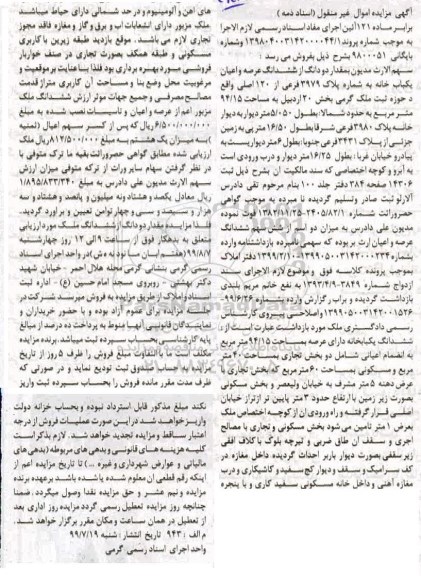 آگهی مزایده اموال غیر منقول (اسناد ذمه)
برابر ماده ۱۲۱ آئین اجرای مفاد اسناد رسمی لازم الاجرا
به موجب شماره پرونده ۱۳۹۸۰۴۰۰۳۱۴۲۰۰۰۰۴۴/۱ و شماره
بایگانی ۹۸۰۰۰۵۱ بشرح ذیل بفروش می رسد:
سهم الارث مدیون بمقدار دو دانگ از ششدانگ عرصه و اعیان
یکباب خانه به شماره پلاک ۳۹۷۹ فرعی از ۱۲۰ اصلی واقع
در حوزه ثبت ملک گرمی بخش ۲۰ اردبیل به مساحت ۹۴/۱۵
متر مربع به حدود شمالا: بطول ۵/۰۵۰ متر دیوار به دیوار
خانه پلاک ۳۹۸۰ فرعی شرقا بطول ۱۶/۵۰ متر پی به زمین
جزئی از پلاک ۳۴۳۱ فرعی جنوبا: بطول ۶ متر دیواریست به
پیاده رو خیابان غربا: بطول ۱۶/۲۵ متر دیوار و درب ورودی است
به آبرو و کوچه اختصاصی که سند مالکیت آن بشرح ذیل ثبت
۱۴۳۰۶ صفحه ۳۸۴ دفتر جلد ۱۰۰ بنام مرحوم تقی دادرس
آلارلو ثبت صادر و تسلیم گردیده که به موجب گواهی
حصروراثت شماره ۲۴۰۵/۸۲/۱ - ۱۳۸۲/۱۱/۲۵ فوت نموده
مدیون علی دادرس به میزان دو از شش سهم ششدانگ
عرصه و اعیان ارث بر بوده که سهمی نامبرده بازداشتنامه وارده
شماره ۱۳۹۹۰۵۰۰۳۱۴۲۰۰۰۲۳۴ - ۱۳۹۹/۲/۱۰ دفتر املاک
بموجب پرونده کلاسه فوق و موضوع لازم الاجرای سند
ازدواج شماره ۳۸۴۹ - ۱۳۹۳/۴/۹ به نفع خانم مریم بلندی
بازداشت گردیده و برابر گزارش وارده بشماره ۹۹/۶/۲۶ -
۱۳۹۹۰۵۰۰۳۱۴۲۰۰۱۵۳۶ و اصلاحی پیروی کارشناس
رسمی دادگستری ملک مورد بازداشت عبارت است از:
ششدانگ یکبابخانه دارای عرصه بمساحت ۹۴/۱۵ متر مربع
به انضمام اعیانی شامل دو بخش تجاری بمساحت ۴۰ متر
مربع و مسکونی بمساحت ۶۰ متر مربع که بخش تجاری با
عرض دهنه ۵ متر مشرف به خیابان ولیعصر و بخش مسکونی
بصورت زیر زمین با ارتفاع حدود ۳ متر پایین تر از تراز خیابان
اصلی قرار گرفته و راه ورودی آن از کوچه اختصاصی ملک
بعرض ۱ متر تامین می شود بخش مسکونی و تجاری با مصالح
اجری و سقف آن طاق ضربی و تیرچه بلوک با کلاف افقی
و عمودی بصورت دیوار باربر احداث گردیده داخل مغازه در
کف سرامیک و سقف و دیوار گچ سفید و کاشیکاری و درب
مغازه آهنی و داخل خانه مسکونی سفید کاری و با پنجره
های آهن و آلومینیوم و در حد شمالی دارای حیاط میباشند
ملک مزبور دارای انشعابات آب و برق و گاز و مغازه فاقد مجوز
تجاری لازم می باشد. موقع بازدید طبقه زیرین با کاربری
مسکونی و طبقه همکف بصورت تجاری در صنف خواربار
فروشی مورد بهره برداری بود فلذا با عنایت بر موقعیت و
مرغوبیت محل وضع بنا و مساحت آن کاربری متراژ قدمت
مصالح مصرفی و جمیع جهات موثر ارزش ششدانگ ملک
مزبور اعم از عرصه و اعیان و تاسیسات نصب شده به مبلغ
۶/۵۰۰/۰۰۰/۰۰۰ ریال که پس از کسر سهم اعیال (ثمنیه
) به میزان یک هشتم به مبلغ ۸۱۲/۵۰۰/۰۰۰ ریال ملک
ارزیابی شده مطابق گواهی حصروراثت بقیه ما ترک متوفی با
در نظر گرفتن سهام سایر وراث از ترکه متوفی میزان ارزش
سهم الارث مدیون علی دادرس به مبلغ ۱/۸۹۵/۸۳۳/۳۴۰
ریال معادل یکصد و هشتاد و نه میلیون و پانصد و هشتاد و سه
هزار و سیصد و سی و چهار تومان تعیین و برآورد گردید.
لذا مزایده مقدار دو دانگ از ششدانگ ملک مورد ارزیابی
متعلق به بدهکار فوق از ساعت ۹ الی ۱۲ روز چهارشنبه
۹۹/۸/۷ (هفتم آبان ماه نود و نه ش) در واحد اجرای اسناد
رسمی گرمی بنشانی گرمی محله هلال احمر - خیابان شهید
دکتر بهشتی - روبروی مسجد امام حسین (ع) - اداره ثبت
اسناد و املاک از طریق مزایده به فروش میرسد شرکت در
جلسه مزایده برای عموم آزاد بوده و با حضور خریداران و
نمایندگان قانونی آنها منوط به پرداخت ده درصد از مبالغ
پایه کارشناسی بحساب سپرده ثبت میباشد. برنده مزایده
مکلف است ما به التفاوت مبلغ فروش را ظرف ۵ روز از تاریخ
مزایده به حساب صندوق ثبت تودیع نماید و در صورتی که
ظرف مدت مقرر مانده فروش را بحساب سپرده ثبت واریز
نکند مبلغ مذکور قابل استرداد نبوده و بحساب خزانه دولت
واریز خواهد شد. در این صورت عملیات فروش از درجه
اعتبار ساقط و مزایده تجدید خواهد شد. لازم بذکر است
کلیه هزینه های قانونی و بدهی های مربوطه (بدهی های
مالیاتی و عوارض شهرداری و غیره ...) تا تاریخ مزایده اعم از
اینکه رقم قطعی آن معلوم شده یا شده باشد برعهده برنده
مزایده و نیم عشر و حق مزایده نقدا وصول میگردد. ضمنا
چنانچه روز مزایده تعطیل رسمی گردد مزایده روز اداری بعد
از تعطیل در همان ساعت و مکان مقرر برگزار خواهد شد.
م الف: ۹۴۳ تاریخ انتشار: شنبه ۹۹/۷/۱۹
واحد اجرای اسناد رسمی گرمی